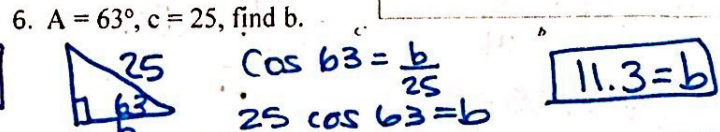 6. A = 63º, c = 25, find b.
c
b
25
63
b
Cos 63 = b/25
25 cos 63 = b
11.3 = b